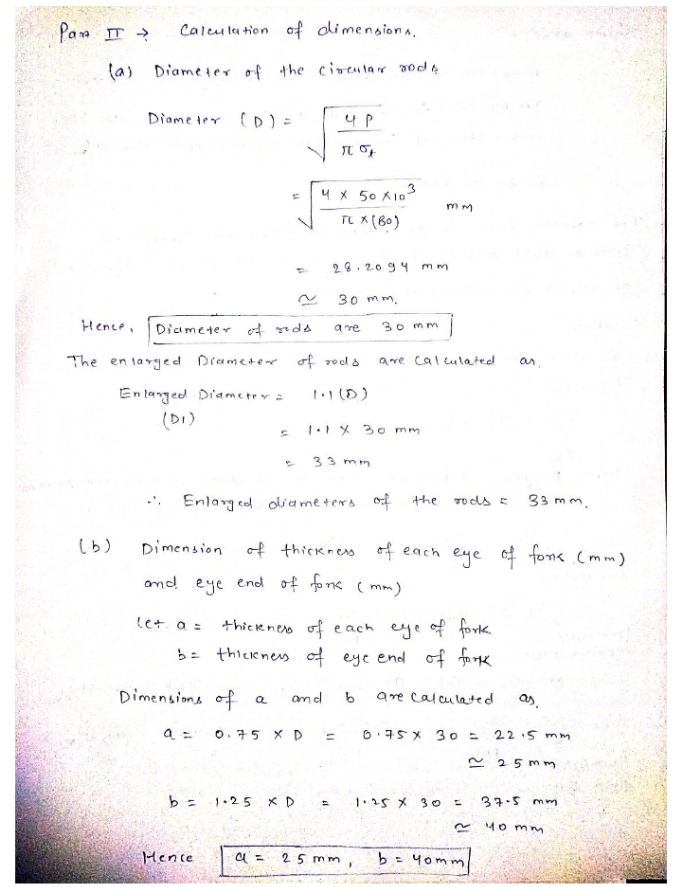 Part II → Calculation of dimensions.
(a) Diameter of the circular rods
Diameter (D) = √(4P / π σt)
= √(4 × 50 × 10³ / π × (80)) mm
= 28.2094 mm
≃ 30 mm.
Hence, Diameter of rods are 30 mm
The enlarged Diameter of rods are calculated as,
Enlarged Diameter = 1.1 (D)
(D1)
= 1.1 × 30 mm
= 33 mm
∴ Enlarged diameters of the rods = 33 mm.
(b) Dimension of thickness of each eye of fork (mm)
and eye end of fork (mm)
Let a = thickness of each eye of fork.
b = thickness of eye end of fork
Dimensions of a and b are calculated as,
a = 0.75 × D = 0.75 × 30 = 22.5 mm
≃ 25 mm
b = 1.25 × D = 1.25 × 30 = 37.5 mm
≃ 40 mm
Hence a = 25 mm, b = 40mm